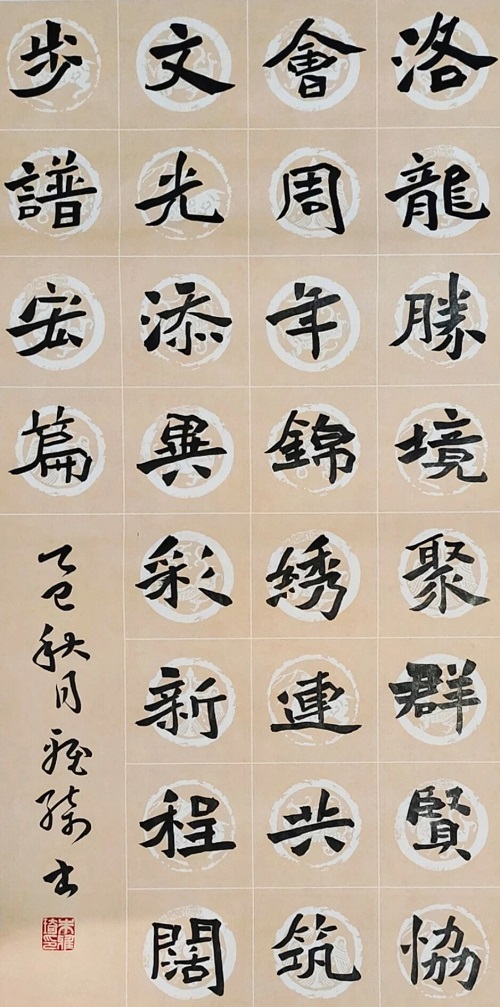 洛龍勝境聚群賢協
會周年錦綉連共筑
文光添異彩新程闊
步譜宏篇
乙巳秋月雅琦書